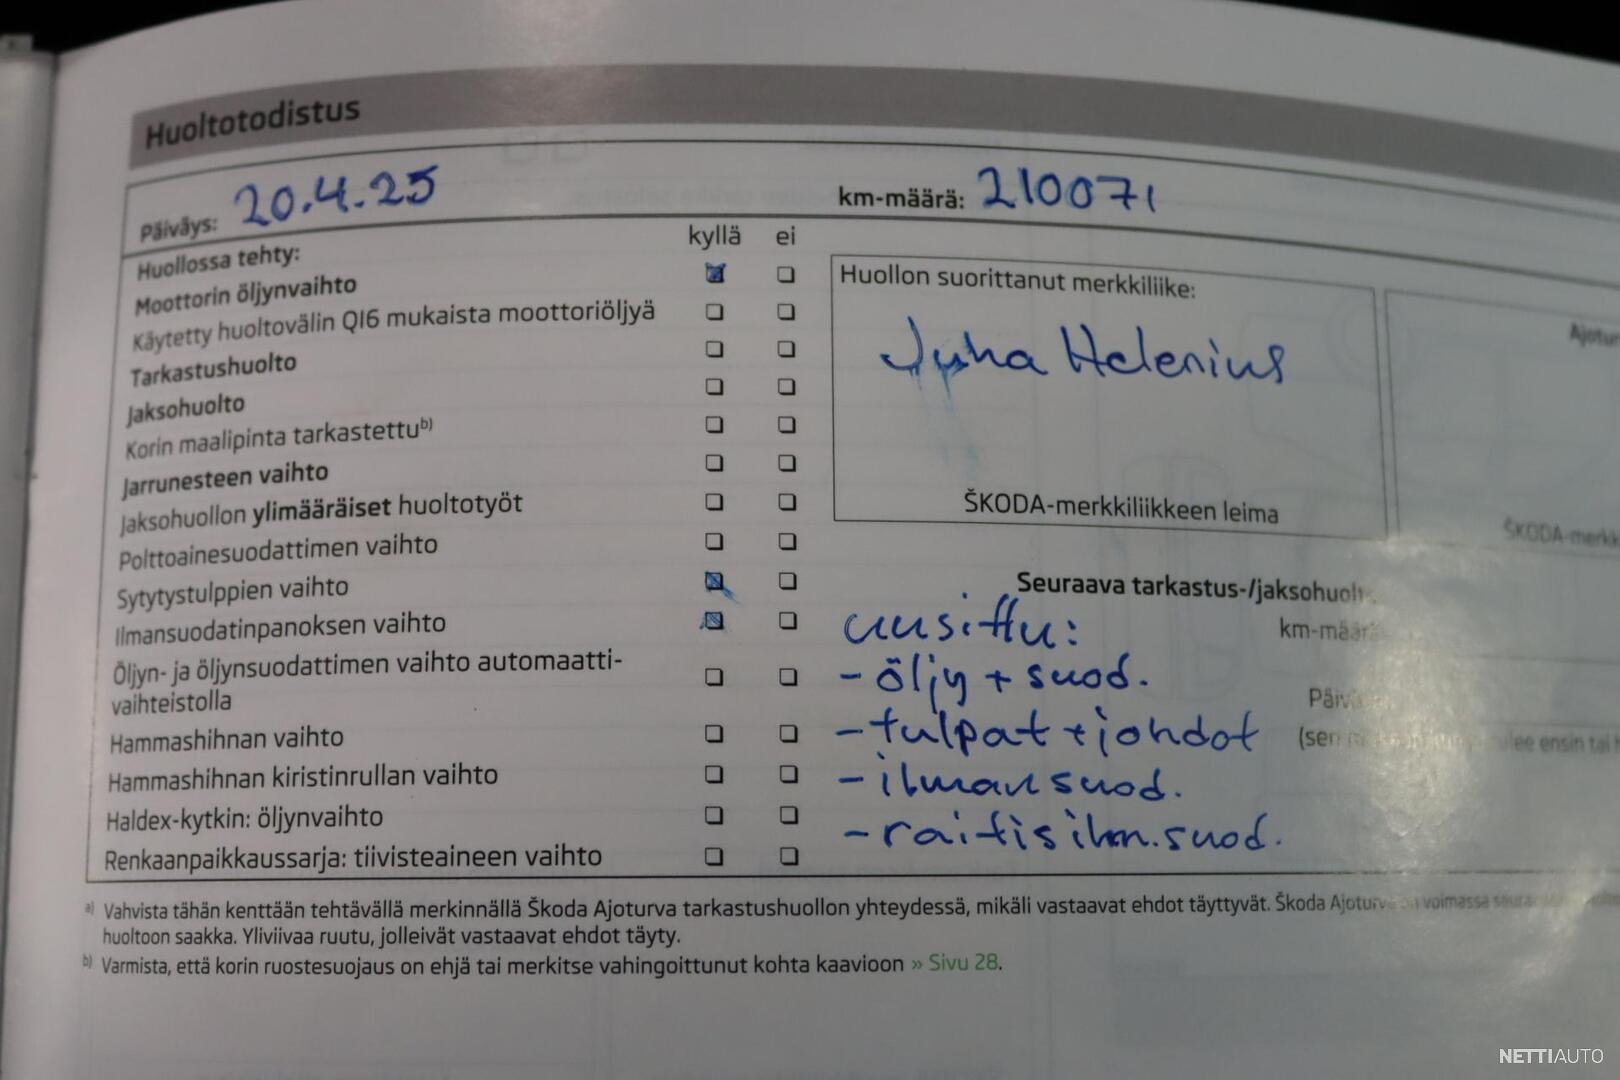 Huoltotodistus
Päiväys: 20.4.25
km-määrä: 210071
Huollossa tehty: kyllä ei
Moottorin öljynvaihto
Käytetty huoltovälin QI6 mukaista moottoriöljyä
Tarkastushuolto
Jaksohuolto
Korin maalipinta tarkastettu b)
Jarrunesteen vaihto
Jaksohuollon ylimääräiset huoltotyöt
Polttoainesuodattimen vaihto
Sytytystulppien vaihto
Ilmansuodatinpanoksen vaihto
Öljyn- ja öljynsuodattimen vaihto automaatti-
vaihteistolla
Hammashihnan vaihto
Hammashihnan kiristinrullan vaihto
Haldex-kytkin: öljynvaihto
Renkaanpaikkaussarja: tiivisteaineen vaihto
Huollon suorittanut merkkiliike:
Juha Helenius
ŠKODA-merkkiliikkeen leima
Seuraava tarkastus-/jaksohuolt
km-määrä
uusittu:
- öljy + suod.
- tulpat + johdot
- ilmansuod.
- raitisilm.suod.
Ajotur
ŠKODA-merkk
Päiv
(sen
a) Vahvista tähän kenttään tehtävällä merkinnällä Škoda Ajoturva tarkastushuollon yhteydessä, mikäli vastaavat ehdot täyttyvät. Škoda Ajoturva on voimassa
huoltoon saakka. Yliviivaa ruutu, jolleivät vastaavat ehdot täyty.
b) Varmista, että korin ruostesuojaus on ehjä tai merkitse vahingoittunut kohta kaavioon » Sivu 28.
NETTIAUTO